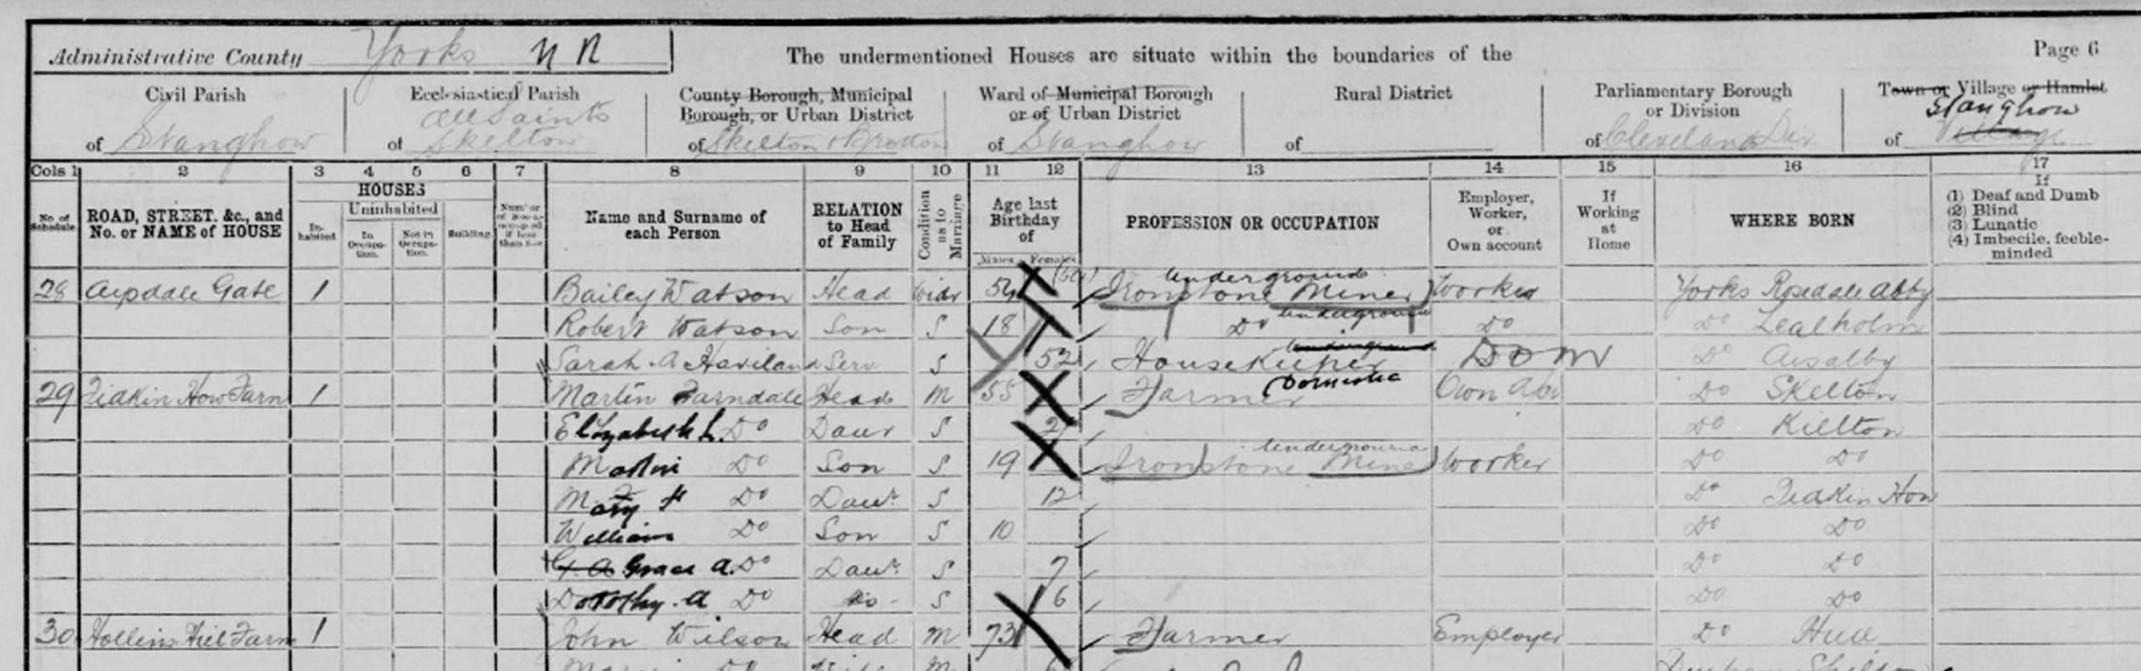 Administrative County Yorks N R The undermentioned Houses are situate within the boundaries of the Page 6
Civil Parish Ecclesiastical Parish County Borough, Municipal Borough, or Urban District Ward of Municipal Borough or of Urban District Rural District Parliamentary Borough or Division Town or Village or Hamlet
of Stanghow of All Saints Skelton of Skelton & Brotton of Stanghow of of Cleveland Div of Stanghow Village
Cols 1 2 3 4 5 6 7 8 9 10 11 12 13 14 15 16 17
No. of Schedule ROAD, STREET, &c., and No. or NAME of HOUSE HOUSES Inhabited Uninhabited In Occupation. Not in Occupation. Building Number of Rooms occupied if less than five Name and Surname of each Person RELATION to Head of Family Condition as to Marriage Age last Birthday of Males Females PROFESSION OR OCCUPATION Employer, Worker, or Own account If Working at Home WHERE BORN If (1) Deaf and Dumb (2) Blind (3) Lunatic (4) Imbecile, feeble-minded
28 Gate 1 Bailey Watson Head Widr 54 Ironstone Miner underground Worker Yorks Rosedale Abby
Robert Watson Son S 18 Do underground Do Do Lealholm
Sarah A Haviland Serv S 52 Housekeeper Domestic Dom Do
29 Tidkin How Farm 1 Martin Farndale Head M 55 Farmer Own Do Skelton
Elizabeth L. Do Daur S Do Kilton
Martin Do Son S 19 Ironstone Miner underground Worker Do Do
Mary Do Daur S 12 Do Tidkin How
William Do Son S 10 Do Do
G. A Grace A. Do Daur S 7 Do Do
Dorothy A Do Do S 6 Do Do
30 Hollins Hill Farm 1 John Wilson Head M 73 Farmer Employer Do